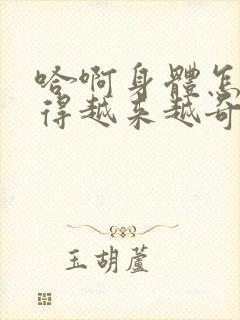 哈啊身體怎
得越来越奇
玉胡蘆